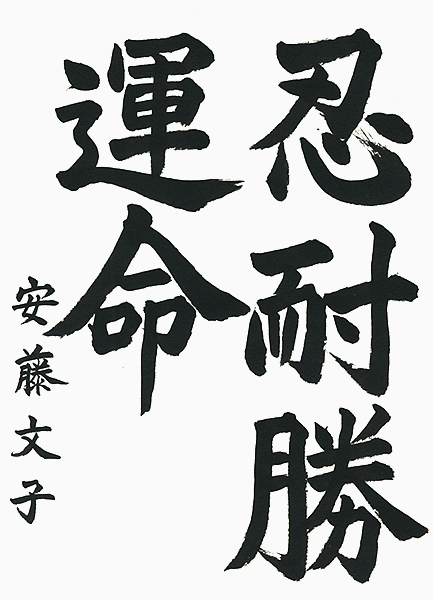 忍耐勝
運命
安藤文子